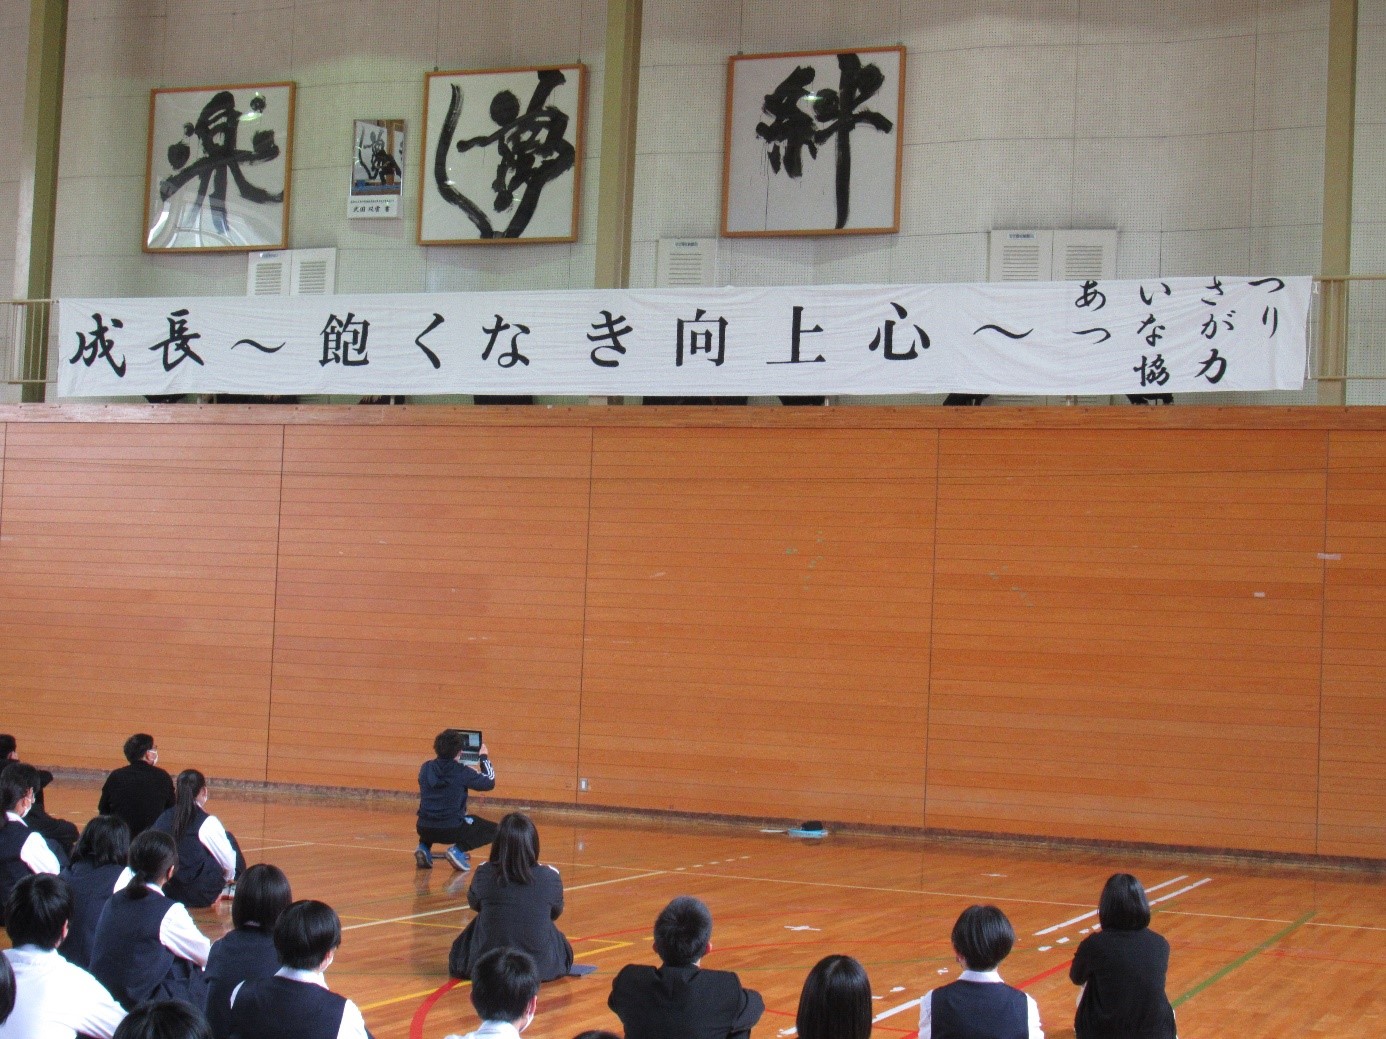 楽
夢
絆
武田 双雲 書
成長～飽くなき向上心～
あいさつ
つながり
協力